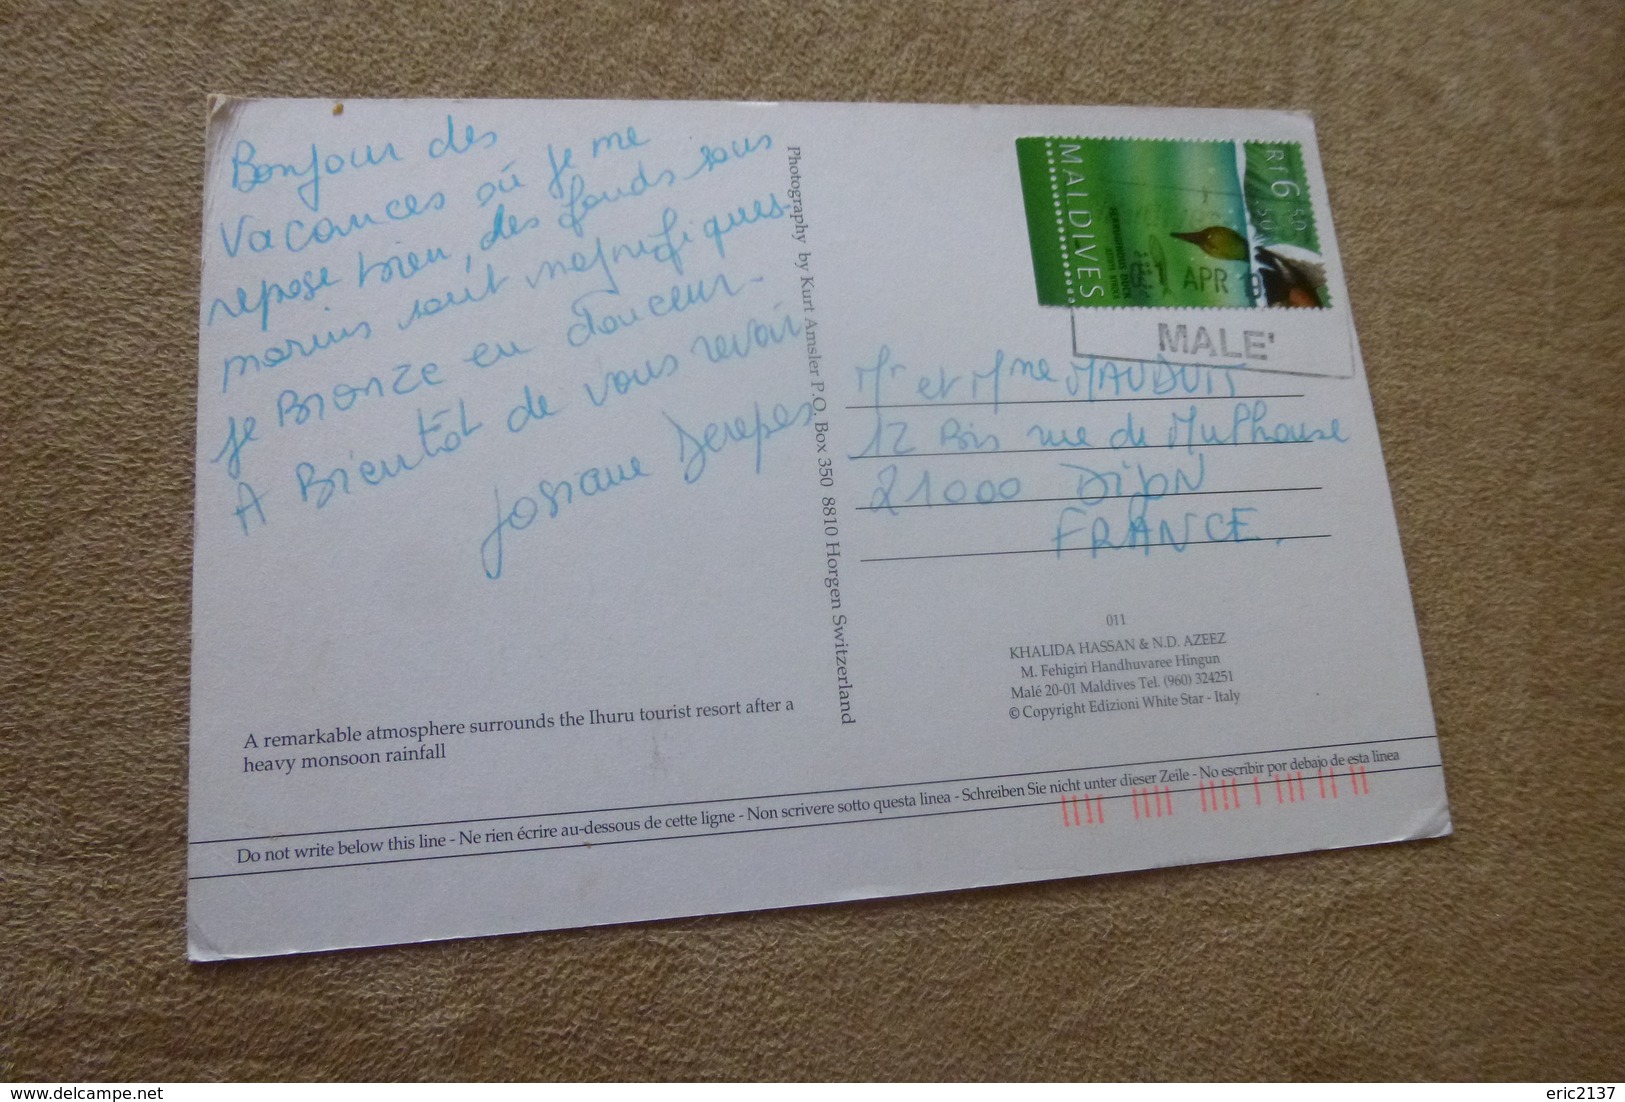 Bonjour des
Vacances où je me
repose bien, des fonds sous
marins sont magnifiques.
je Bronze en douceur.
A Bientôt de vous revoir
Josiane
Photography by Kurt Amsler P.O. Box 350 8810 Horgen Switzerland
MALDIVES
Rf 6
APR
MALE'
Mr et Mme MAUDUIT
12 Bis rue de Mulhouse
21000 Dijon
FRANCE.
011
KHALIDA HASSAN & N.D. AZEEZ
M. Fehigiri Handhuvaree Hingun
Malé 20-01 Maldives Tel. (960) 324251
© Copyright Edizioni White Star - Italy
A remarkable atmosphere surrounds the Ihuru tourist resort after a
heavy monsoon rainfall
Do not write below this line - Ne rien écrire au-dessous de cette ligne - Non scrivere sotto questa linea - Schreiben Sie nicht unter dieser Zeile - No escribir por debajo de esta linea
delcampe.net
eric2137